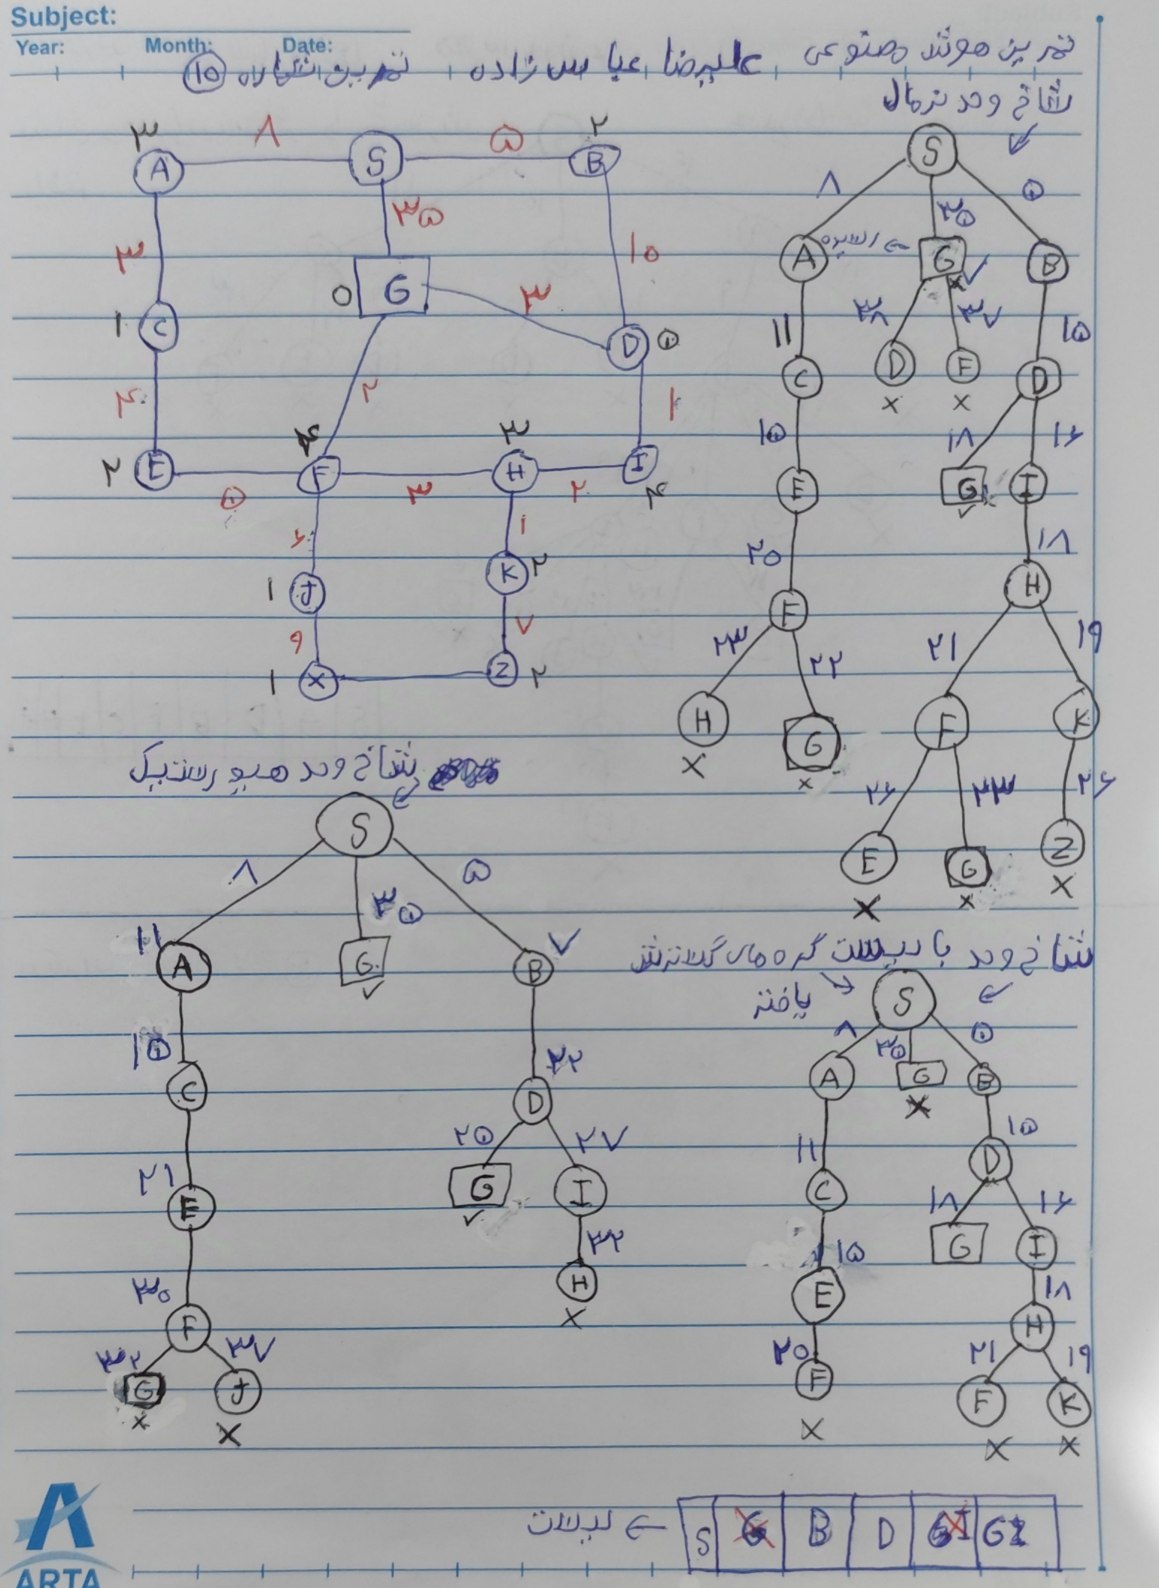 Subject:
Year: Month: Date:
تمرین هوش مصنوعی علیرضا عباس زاده تمرین شماره ۱۵
شاخ و حد نرمال
۳ ۸ ۵ ۲
A S B
۳ ۳۵ ۱۰
۰ G ۳
۱ C D ۵
۴ ۲ ۱
۴ ۳
۲ E F H I
۵ ۳ ۲ ۴
۶ ۱
۱ J K ۲
۹ ۷
۱ X Z ۲
S
۸ ۳۵ ۵
A G B
۱۱ ۳۸ ۳۷ ۱۵
C D F D
× ×
۱۵ ۱۸ ۱۶
E G I
۲۰ ۱۸
F H
۲۳ ۲۲ ۲۱ ۱۹
H G F K
× ×
۲۶ ۲۳ ۲۶
E G Z
× × ×
شاخ و حد هیوریستیک
S
۸ ۳۵ ۵
۱۱ ۷
A G B
۱۵ ۲۲
C D
۲۱ ۲۵ ۲۷
E G I
۳۰ ۳۲
F H
×
۳۲ ۳۷
G J
× ×
شاخ و حد با لیست گره های گسترش
یافته
S
۸ ۳۵ ۵
A G B
×
۱۱ ۱۵
C D
۱۵ ۱۸ ۱۶
E G I
۲۰ ۱۸
F H
×
۲۱ ۱۹
F K
× ×
لیست ← S G B D GI GI
ARTA